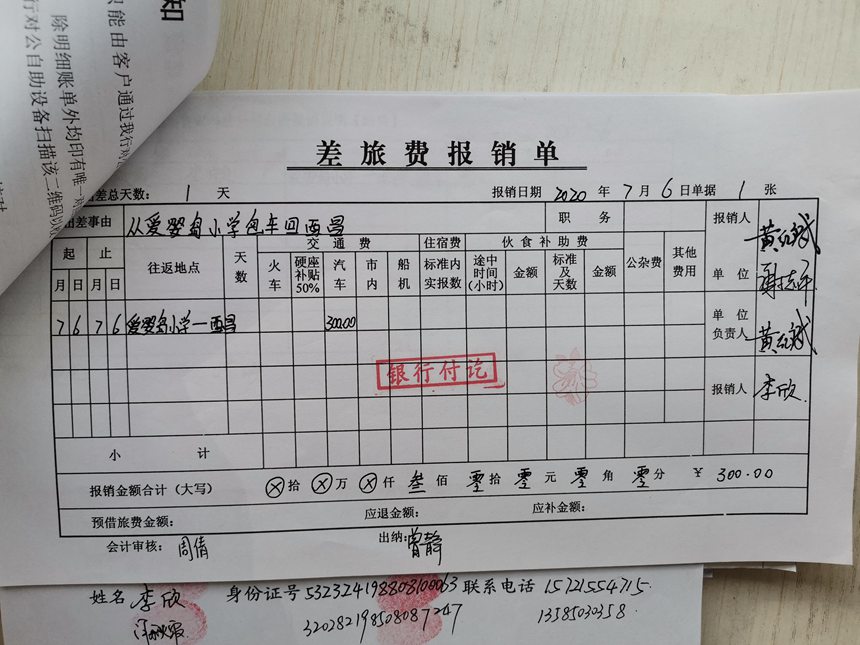 知
只能由客户通过我行对
除明细账单外均印有唯一
行对公自助设备扫描该二维码以
差旅费报销单
出差总天数: 1 天 报销日期 2020 年 7 月 6 日 单据 1 张
出差事由 从爱婴岛小学包车回西昌 职务 报销人
起 止 往返地点 天数 交通费 住宿费 伙食补助费 公杂费 其他费用 单位
月 日 月 日 火车 硬座补贴50% 汽车 市内 船机 标准内实报数 途中时间(小时) 金额 标准及天数 金额
7 6 7 6 爱婴岛小学—西昌 300.00 单位负责人
银行付讫
报销人 李欣
小计
报销金额合计(大写) ⊗拾 ⊗万 ⊗仟 叁佰 零拾 零元 零角 零分 ¥ 300.00
预借旅费金额: 应退金额: 应补金额:
会计审核: 周倩 出纳: 曾静
姓名 李欣 身份证号 532324198808100063 联系电话 15721554715.
320282198508087247 13585030358.